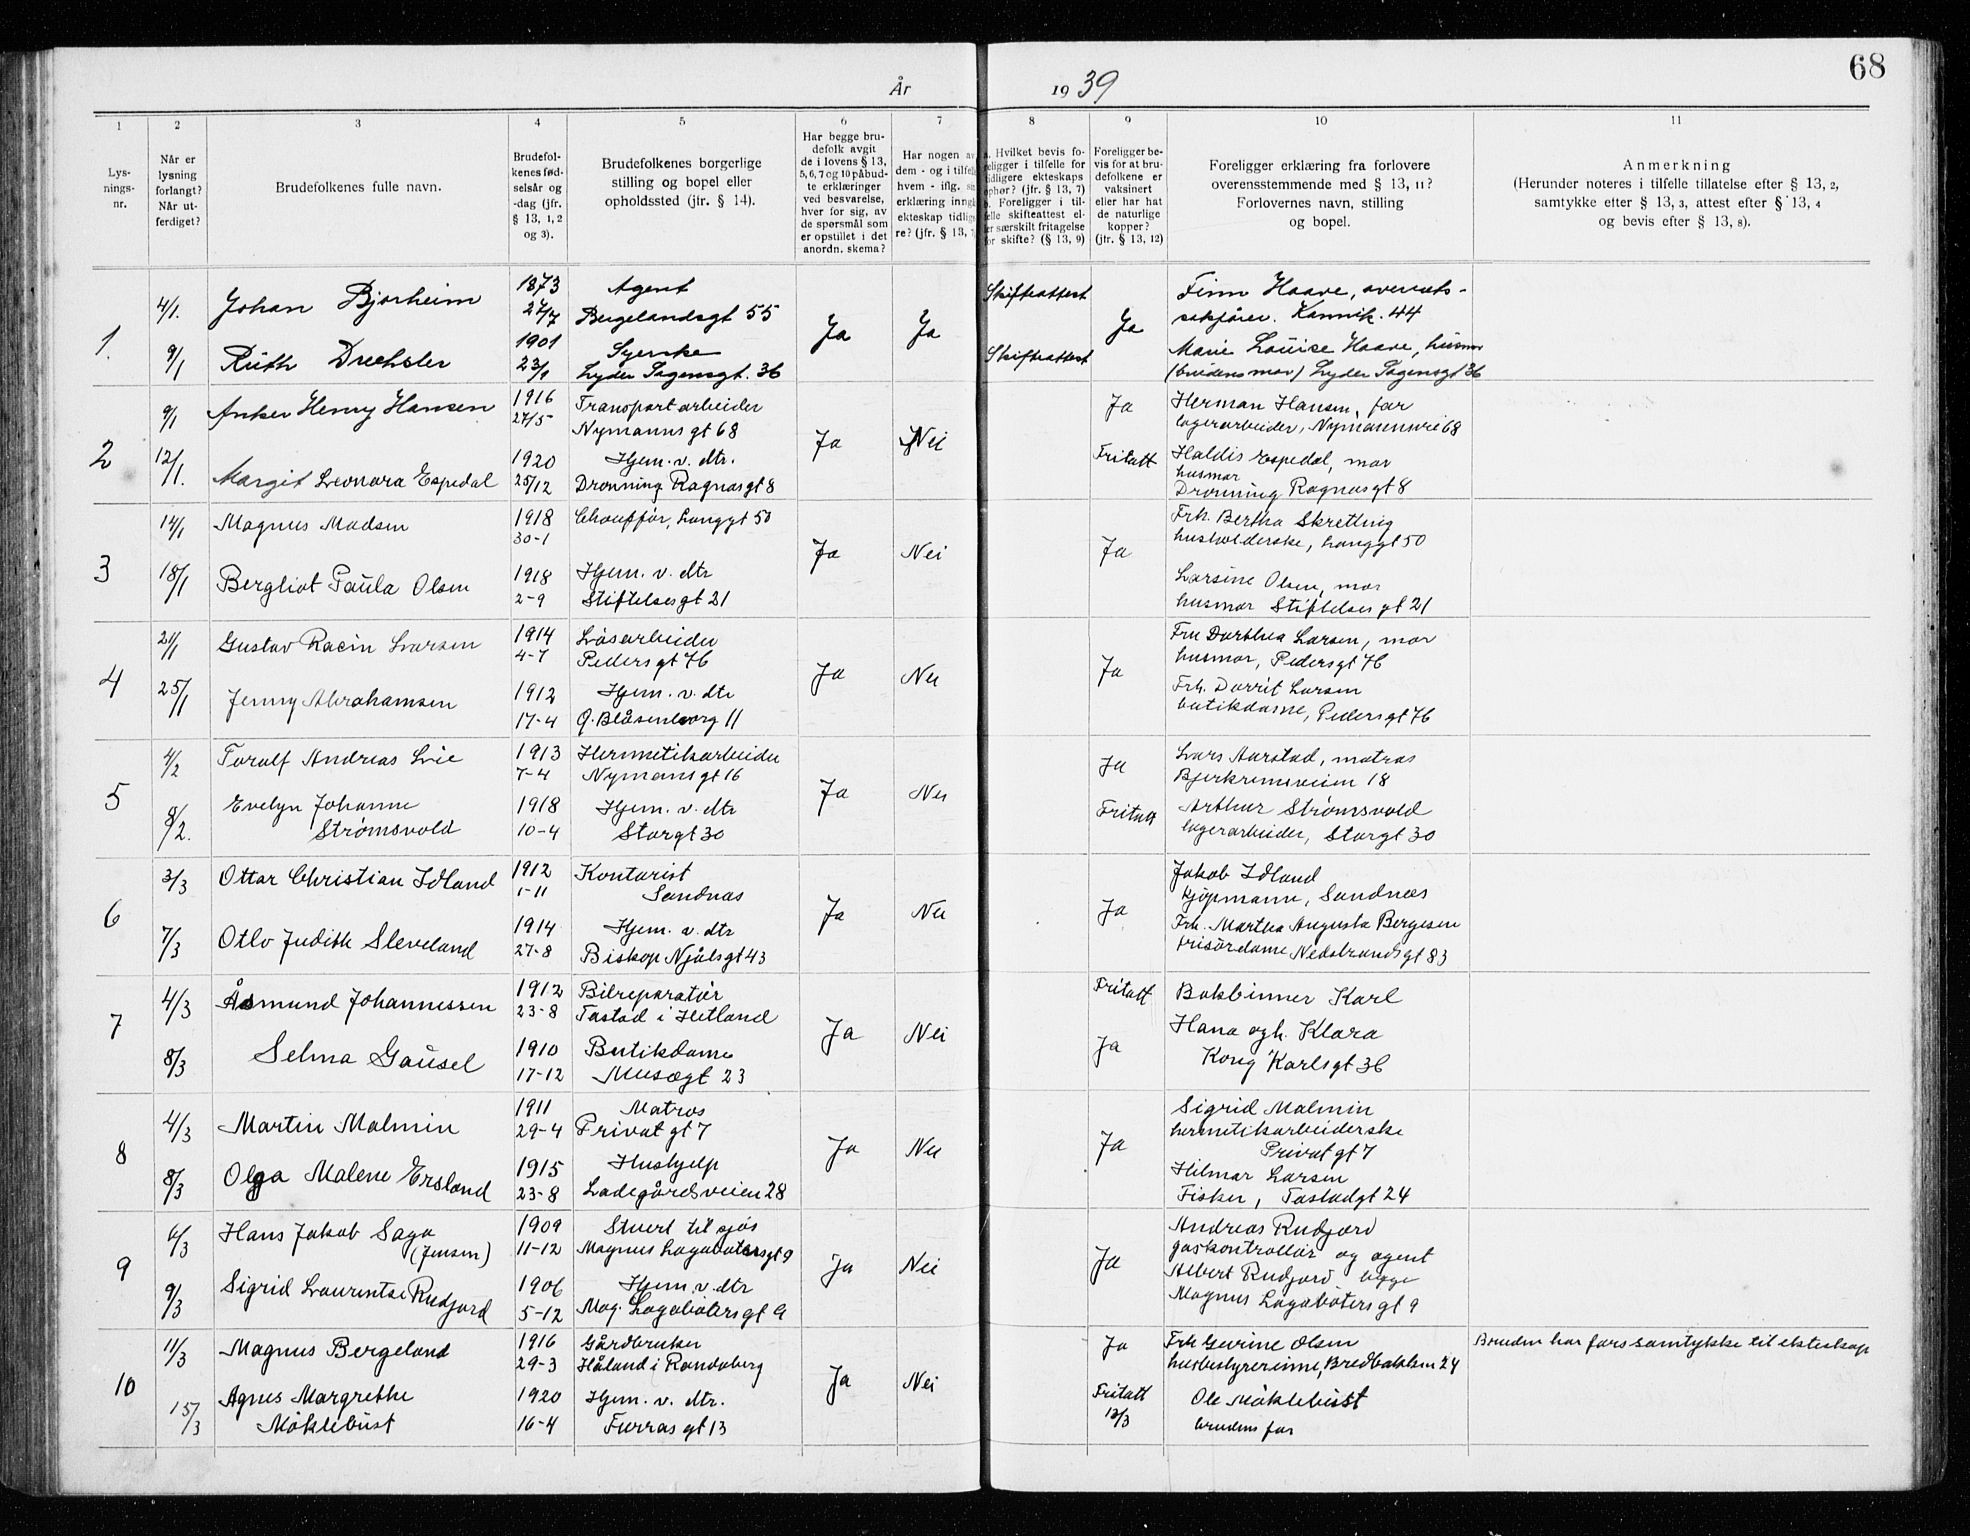 68
År 1939
1 2 3 4 5 6 7 8 9 10 11
Lys-
nings-
nr.
Når er
lysning
forlangt?
Når ut-
ferdiget?
Brudefolkenes fulle navn.
Brudefol-
kenes fød-
selsår og
-dag (jfr.
§ 13, 1, 2
og 3).
Brudefolkenes borgerlige
stilling og bopel eller
opholdssted (jfr. § 14).
Har begge bru-
defolk avgit
de i lovens § 13,
5, 6, 7 og 10 påbud-
te erklæringer
ved besvarelse,
hver for sig, av
de spørsmål som
er opstillet i det
anordn. skema?
Har nogen av
dem - og i tilfelle
hvem - iflg. sin
erklæring inngå
ekteskap tidlige
re? (jfr. § 13, 7
a. Hvilket bevis fo-
religger i tilfelle for
tidligere ekteskaps
ophør? (jfr. § 13, 7)
b. Foreligger i til-
felle skifteattest el-
ler særskilt fritagelse
for skifte? (§ 13, 9)
Foreligger be-
vis for at bru-
defolkene er
vaksinert
eller har hat
de naturlige
kopper?
(jfr. § 13, 12)
Foreligger erklæring fra forlovere
overensstemmende med § 13, 11?
Forlovernes navn, stilling
og bopel.
Anmerkning
(Herunder noteres i tilfelle tillatelse efter § 13, 2,
samtykke efter § 13, 3, attest efter § 13, 4
og bevis efter § 13, 8).
1.
4/1.
Johan Bjorheim
1873
27/7
Agent
Bergelandsgt 55
9/1
Ruth Drechsler
1901
23/1
Syerske
Lyder Sagensgt. 36
Ja
Ja
Skifteattest
Skifteattest
Ja
Finn Haave, overrets-
sakfører. Kannik. 44
Marie Louise Haave, husmor
(brudens mor) Lyder Sagensgt 36
2
9/1
Anker Henry Hansen
1916
27/5
Transportarbeider
Nymannsgt 68
12/1.
Margit Leonora Espedal
1920
25/12
Hjem. v. dtr.
Dronning Ragnasgt 8
Ja
Nei
Ja
Fritatt
Herman Hansen, far
lagerarbeider, Nymannsvei 68
Haldis Espedal, mor
husmor
Dronning Ragnasgt 8
3
14/1
Magnus Madsen
1918
30-1
Chauffør, Langgt 50
18/1
Bergliot Paula Olsen
1918
2-9
Hjem. v. dtr
Stiftelsesgt 21
Ja
Nei
Ja
Frk. Bertha Skretting
husholderske, Langgt 50
Larsine Olsen, mor
husmor Stiftelsesgt 21
4
21/1
Gustav Racin Larsen
1914
4-7
Løsarbeider
Pedersgt 76
25/1
Jenny Abrahamsen
1912
17-4
Hjem. v. dtr
Q. Blåsenborg 11
Ja
Nei
Ja
Fru Dorthea Larsen, mor
husmor, Pedersgt 76
Frk. Dorrit Larsen
butikdame, Pedersgt 76
5
4/2
Torolf Andreas Lie
1913
7-4
Hermetikarbeider
Nymansgt 16
8/2.
Evelyn Johanne
Strømsvold
1918
10-4
Hjem. v. dtr
Storgt 30
Ja
Nei
Ja
Fritatt
Lars Aarstad, matros
Bjerkremsveien 18
Arthur Strømsvold
lagerarbeider, Storgt 30
6
3/3
Ottar Christian Idland
1912
1-11
Kontorist
Sandnæs
7/3
Otlo Judith Sleveland
1914
27-8
Hjem. v. dtr
Biskop Njålsgt 43
Ja
Nei
Ja
Jakob Idland
kjøpmann, Sandnæs
Frk. Martha Augusta Bergesen
frisørdame Nedstrandsgt 83
7
4/3
Åsmund Johannessen
1912
23-8
Bilreparatør
Tastad i Hetland
8/3
Selma Gausel
1910
17-12
Butikdame
Musægt 23
Ja
Nei
Fritatt
Ja
Bokbinner Karl
Hana ogh. Klara
Kong Karlsgt 36
8
4/3
Martin Malmin
1911
29-4
Matros
Privatgt 7
8/3
Olga Malene Ersland
1915
23-8
Hushjelp
Ladegårdsveien 28
Ja
Nei
Ja
Sigrid Malmin
hermetikarbeiderske
Privatgt 7
Hilmar Larsen
Fisker, Tastadgt 24
9
6/3
Hans Jakob Saga
(Jensen)
1909
11-12
Stuert til sjøs
Magnus Lagabøtersgt 9
9/3
Sigrid Laurentse Rudjord
1906
5-12
Hjem. v. dtr
Mag. Lagabøtersgt 9
Ja
Nei
Ja
Andreas Rudjord
gaskontrollør og agent
Albert Rudjord begge
Magnus Lagabøtersgt 9
10
11/3
Magnus Bergeland
1916
29-3
Gårdbruker
Håland i Randaberg
15/3
Agnes Margrethe
Møklebust
1920
16-4
Hjem. v. dtr.
Furrasgt 13
Ja
Nei
Ja
Fritatt
13/3
Frk Gurine Olsen
husbestyrerinne, Bredbakken 24
Ole Møklebust
brudens far
Bruden har fars samtykke til ekteskap